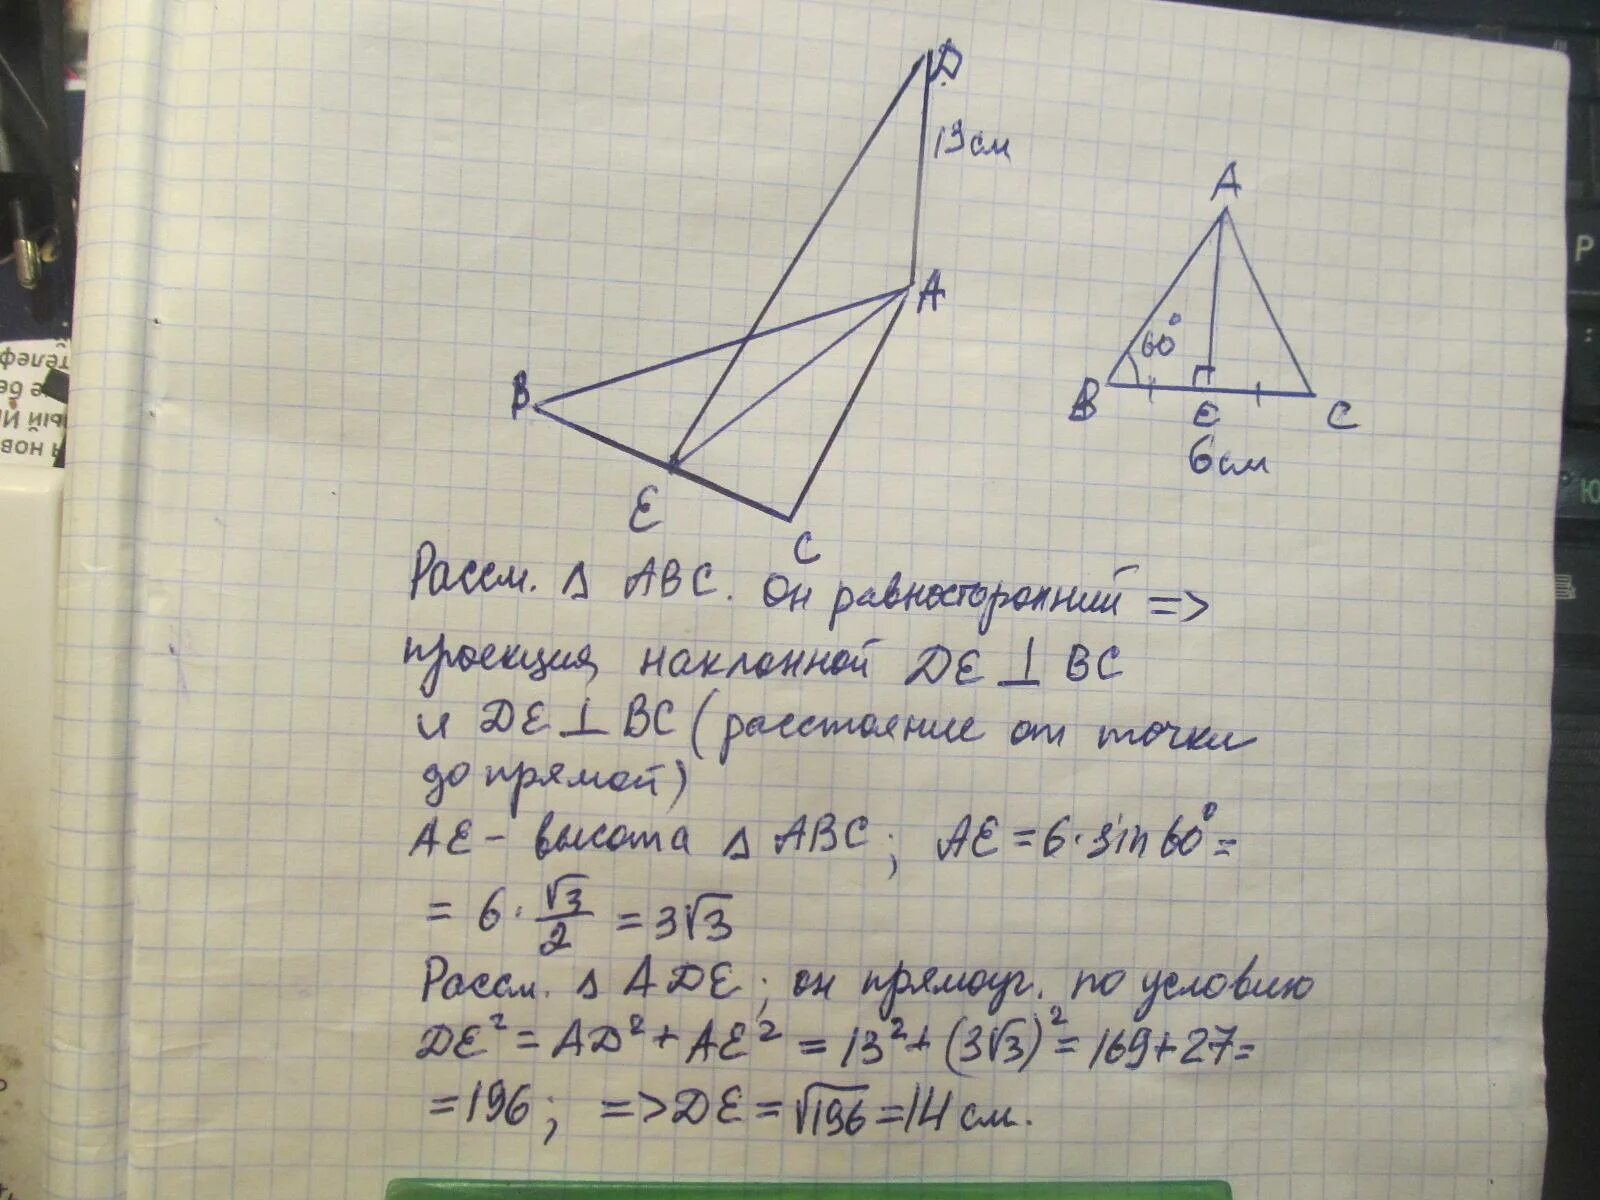 D
13см
A
B
E
C
A
60°
B
E
C
6см
Рассм. Δ ABC. Он равносторонний =>
проекция наклонной DE ⊥ BC
и DE ⊥ BC (расстояние от точки
до прямой)
AE - высота Δ ABC; AE = 6 · sin 60° =
= 6 · √3/2 = 3√3
Рассм. Δ ADE; он прямоуг. по условию
DE² = AD² + AE² = 13² + (3√3)² = 169 + 27 =
= 196; => DE = √196 = 14 см.
телеф
Р
Ю